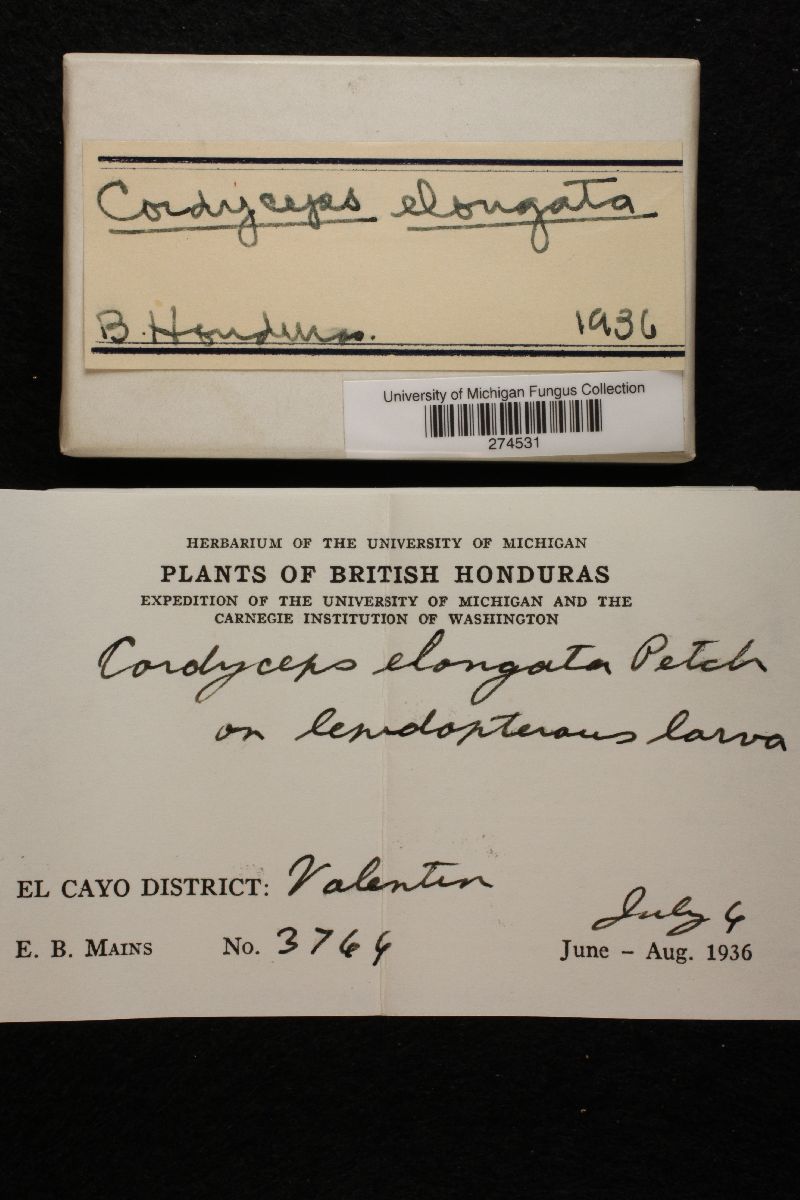 Cordyceps elongata
B. Honduras. 1936
University of Michigan Fungus Collection
274531
HERBARIUM OF THE UNIVERSITY OF MICHIGAN
PLANTS OF BRITISH HONDURAS
EXPEDITION OF THE UNIVERSITY OF MICHIGAN AND THE
CARNEGIE INSTITUTION OF WASHINGTON
Cordyceps elongata Petch
on lepidopterous larva
EL CAYO DISTRICT: Valentin
July 6
E. B. MAINS No. June – Aug. 1936